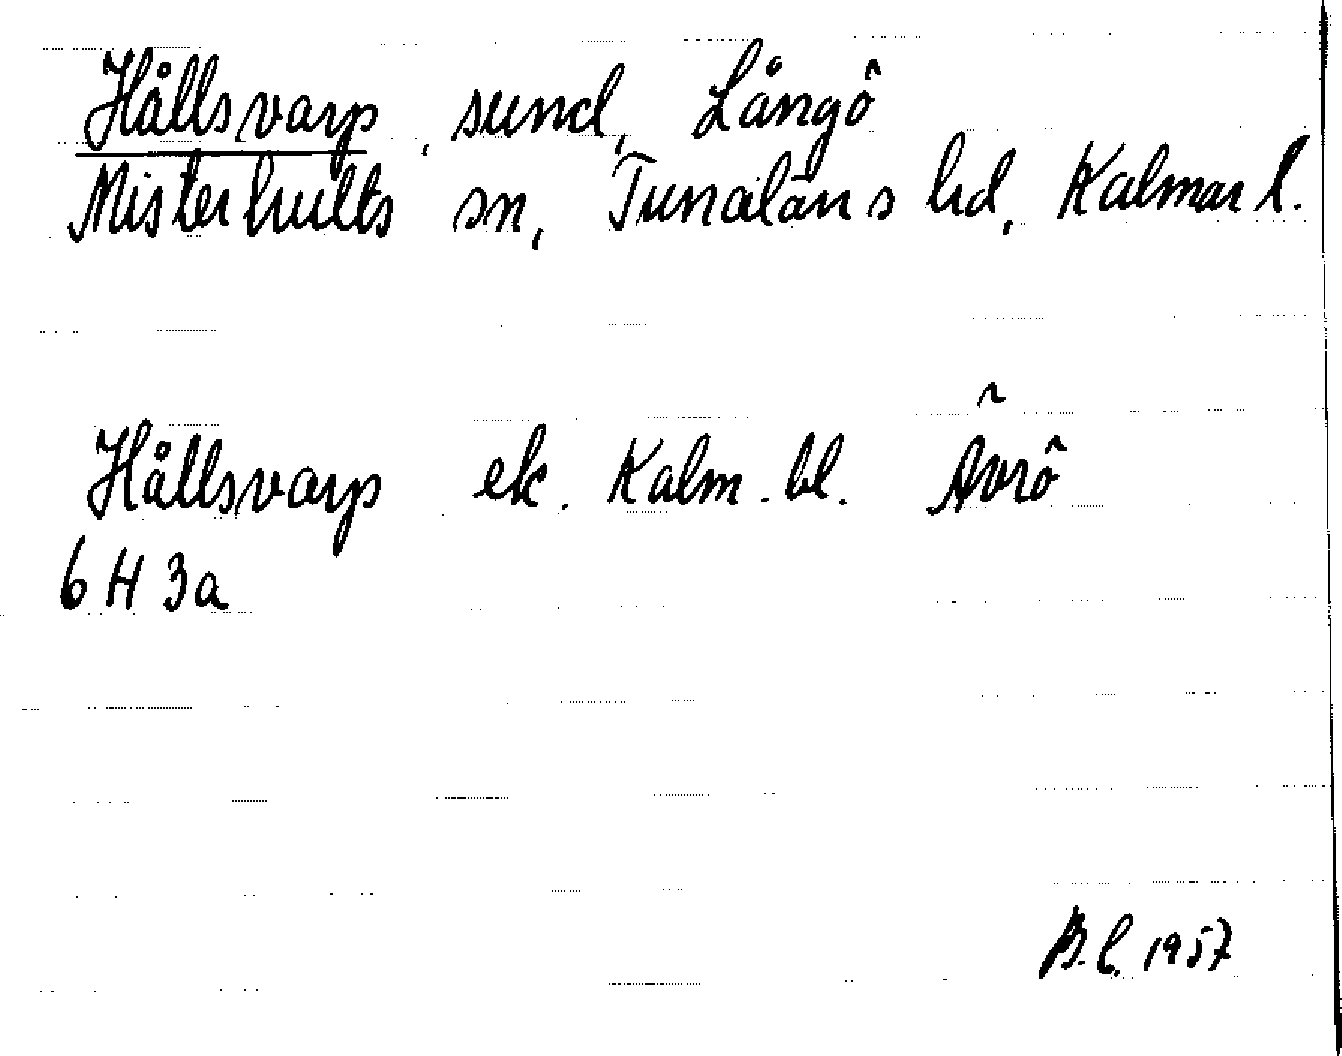 Hållsvarp, sund, Långö
Misterhults sn, Tunaläns hd, Kalmar l.
Hållsvarp ek. Kalm. bl. Ävrö
6 H 3a
B.L. 1957